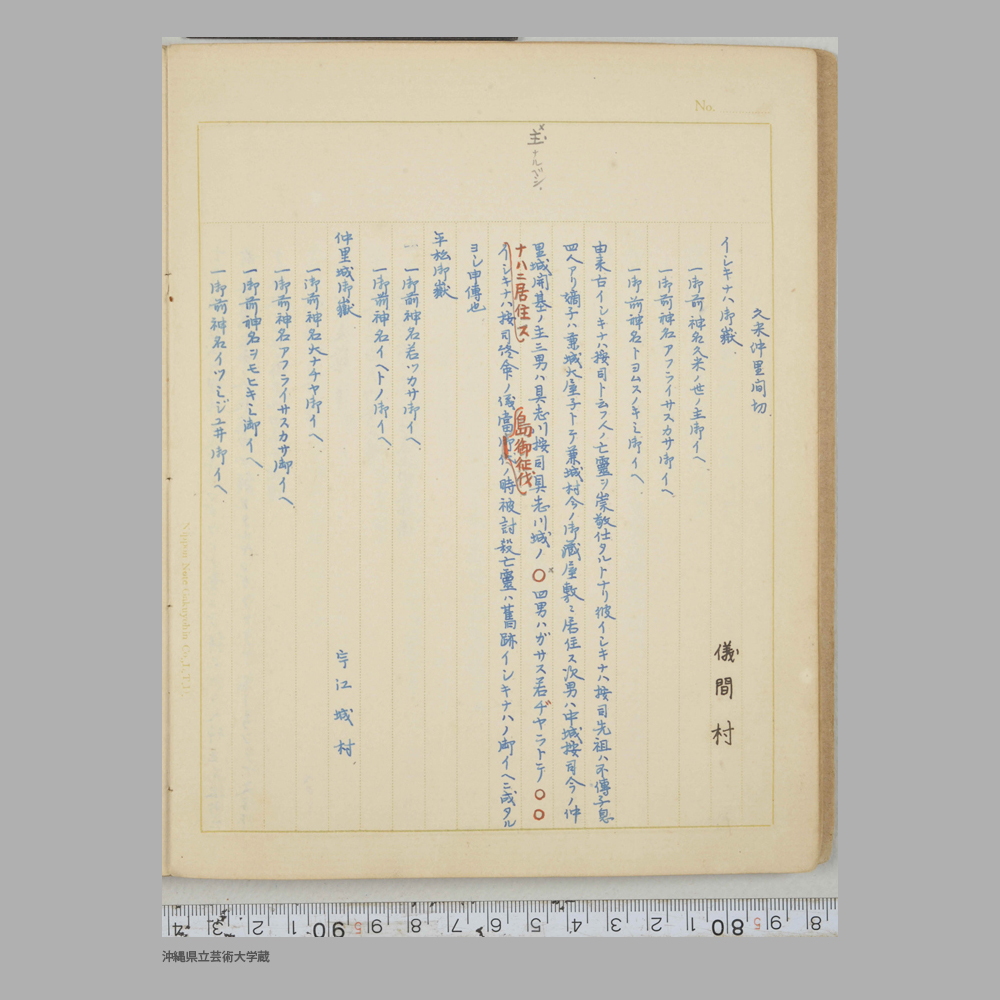 No.
主ナルベシ
久米仲里間切
イシキナハ御嶽
儀間村
一御前神名久米ノ世ノ主御イヘ
一御前神名アフライサスカサ御イヘ
一御前神名トヨムスノキミ御イヘ
由来古イシキナハ按司ト云フ人ノ亡靈ヲ崇敬仕タルトナリ彼イシキナハ按司先祖ハ不傳子息
四人アリ嫡子ハ兼城大屋子トテ兼城村今ノ御藏屋敷ニ居住ス次男ハ中城按司今ノ仲
里城開基ノ主三男ハ具志川按司具志川城ノ〇四男ハガサス若ヂヤラトテ〇〇
ナハニ居住ス
島御征伐
イシキナハ按司終命ノ儀當御代ノ時被討殺亡靈ハ舊跡イシキナハノ御イヘニ成タル
ヨシ申傳也
平松御嶽
一御前神名若ツカサ御イヘ
一御前神名イヘトノ御イヘ
仲里城御嶽
宇江城村
一御前神名大ナチヤ御イヘ
一御前神名アフライサスカサ御イヘ
一御前神名ヨモヒキミ御イヘ
一御前神名イツミジユ井御イヘ
8 9 80 1 2 3 4 5 6 7 8 9 90 1 2 3 4
沖縄県立芸術大学蔵